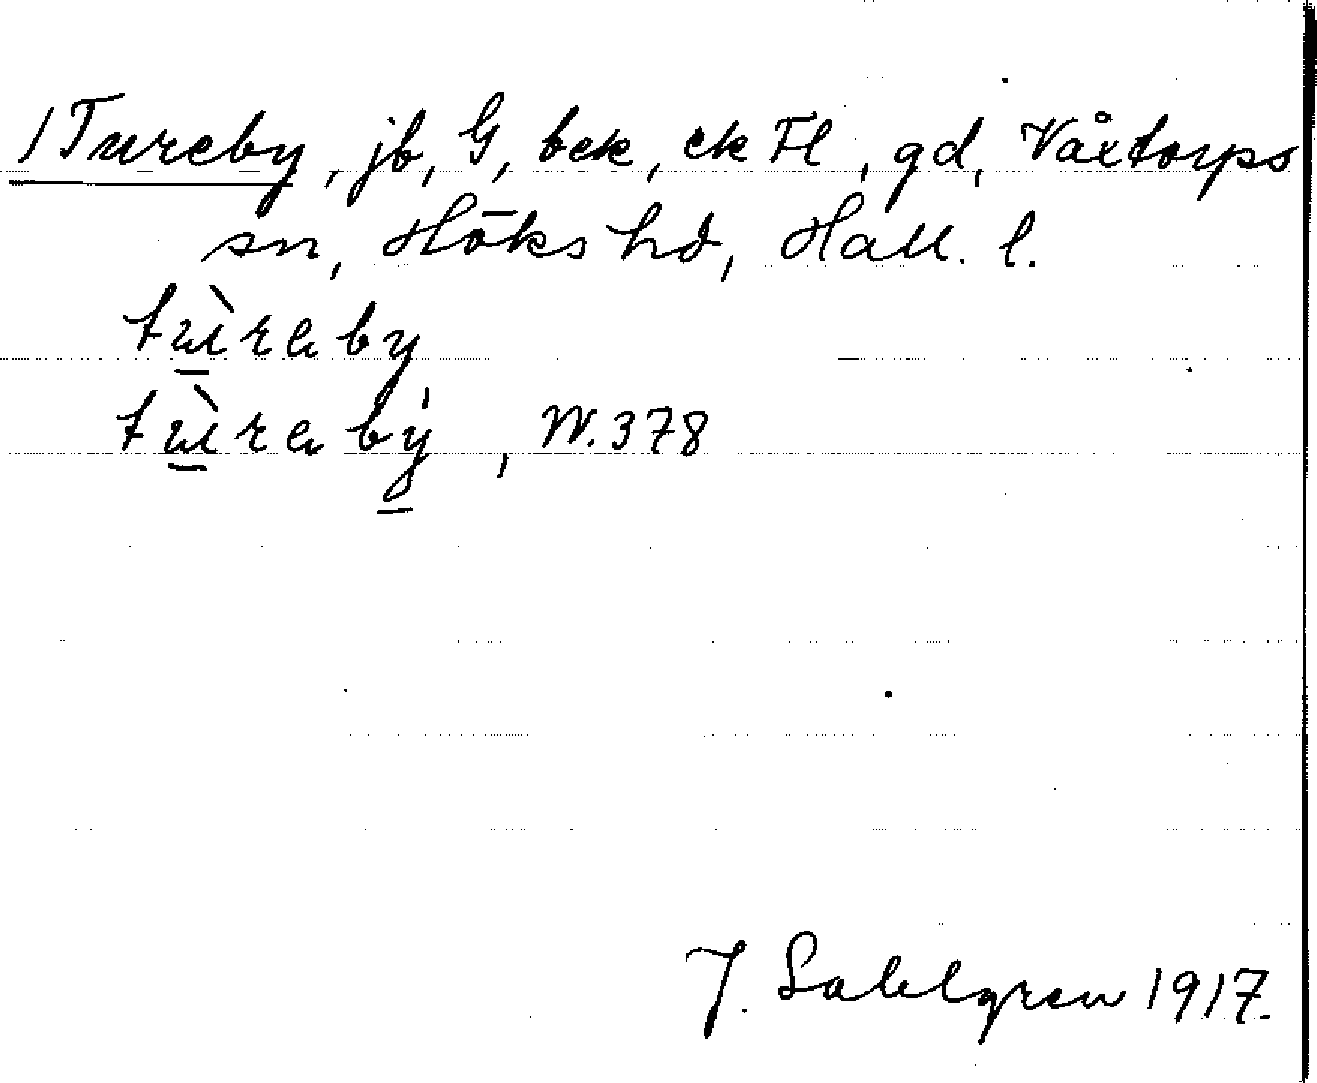 1 Tureby, jb, G, bek, ek Fl, gd, Våxtorps
sn, Höks hd, Hall. l.
tù̲rəby
tù̲rəbý, W. 378
y̲
J. Sahlgren 1917.